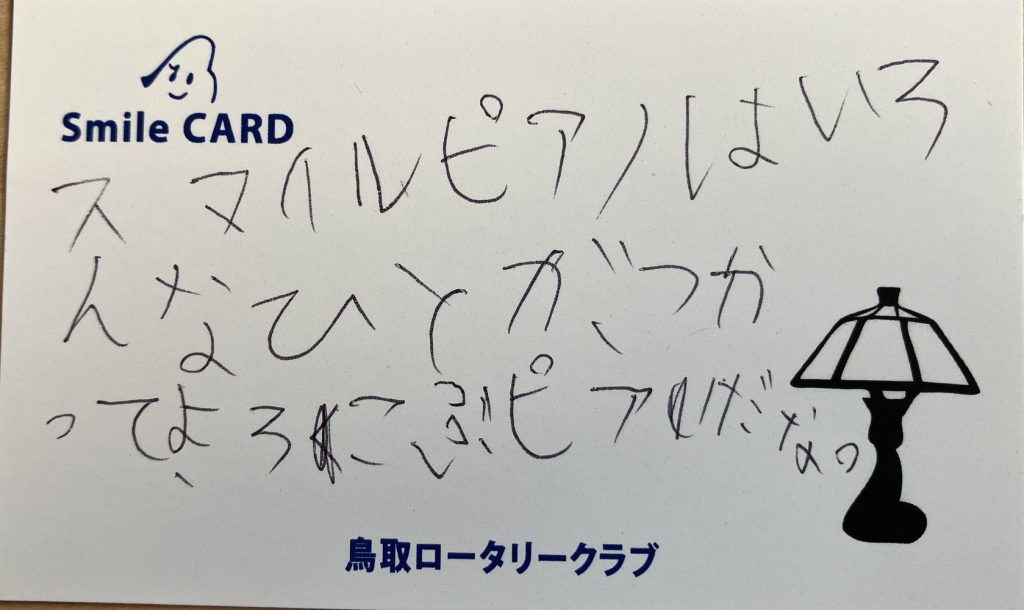 Smile CARD
スマイルピアノはいろ
んなひとが、つか
ってよろこぶピアノだなっ
鳥取ロータリークラブ